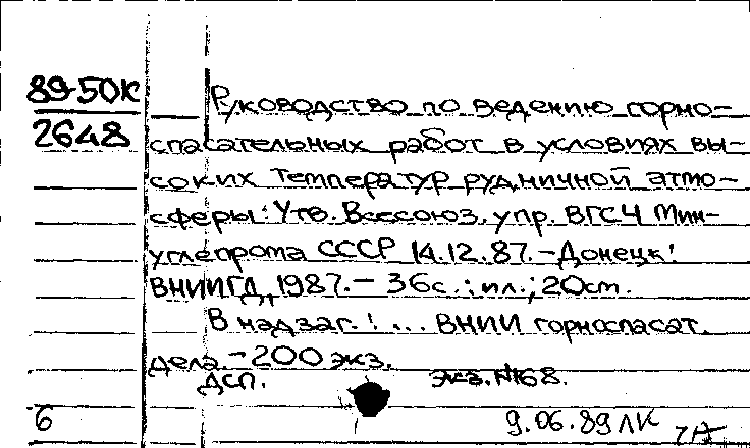 89-50К
2648
Руководство по ведению горно-
спасательных работ в условиях вы-
соких температур рудничной атмо-
сферы: Утв. Всесоюз. упр. ВГСЧ Мин-
углепрома СССР 14.12.87.-Донецк:
ВНИИГД, 1987.- 36с.:ил.; 20см.
В надзаг.: ... ВНИИ горноспасат.
дела.-200 экз.
ДСП. экз.№68.
6 9.06.89 ЛК